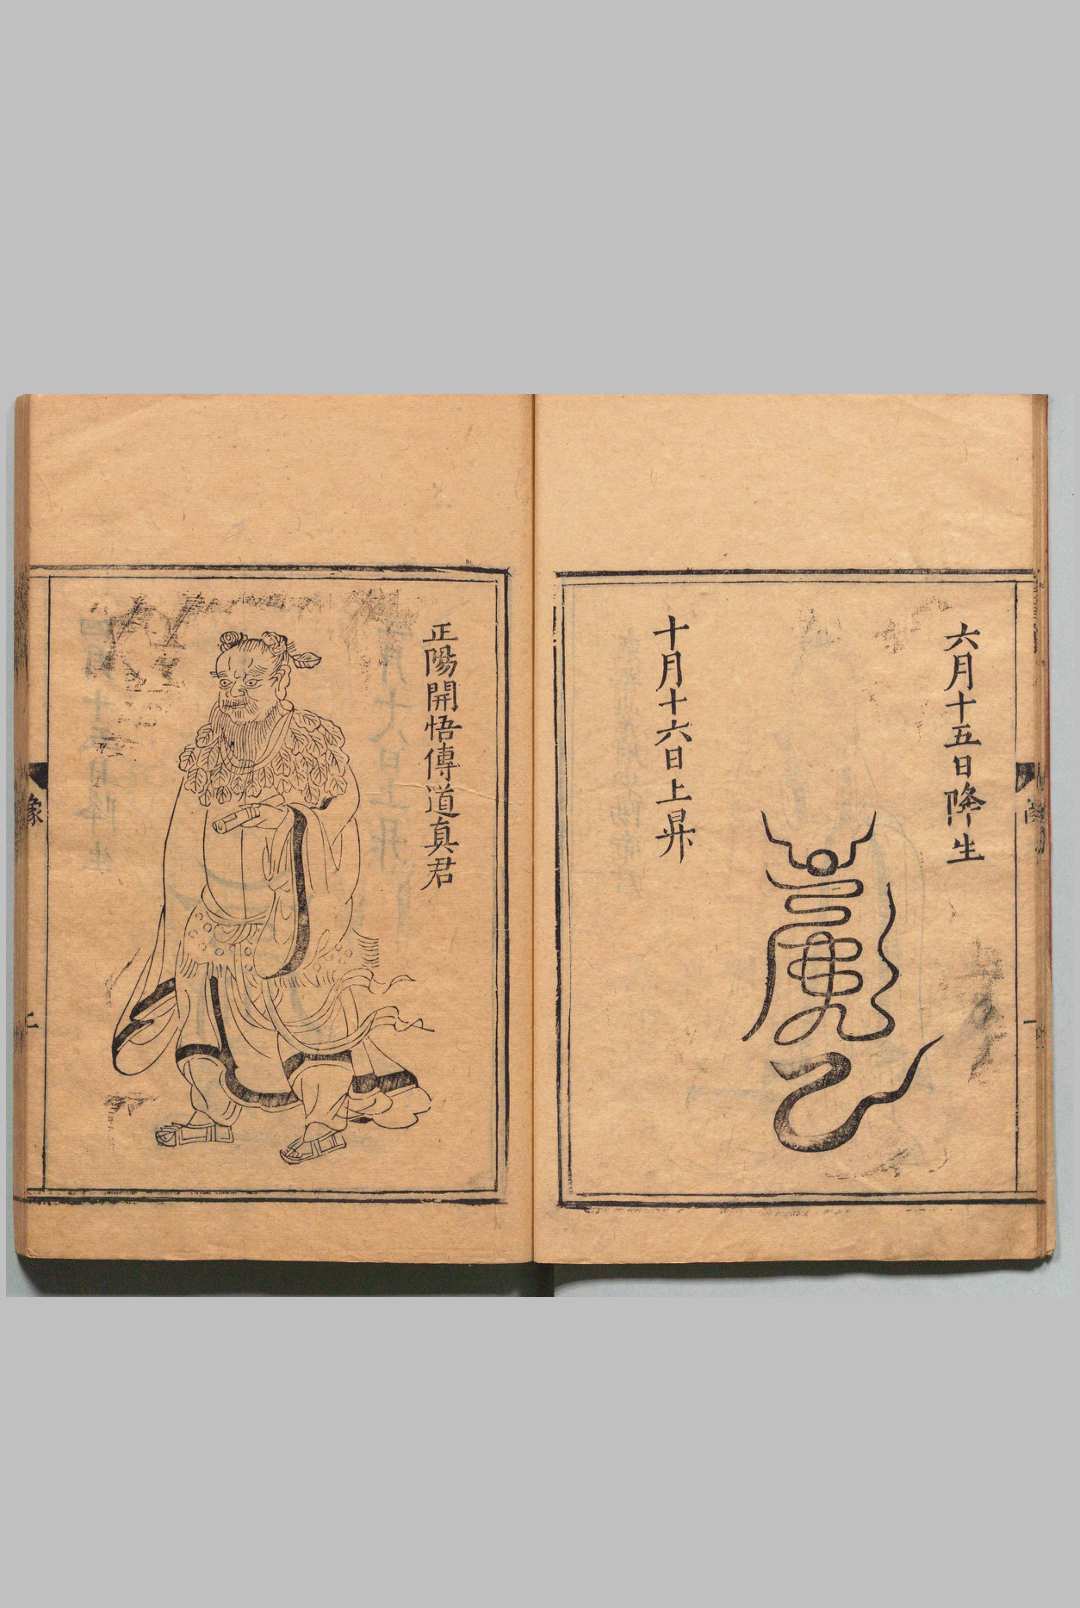 六月十五日降生
十月十六日上昇
正陽開悟傳道真君
像